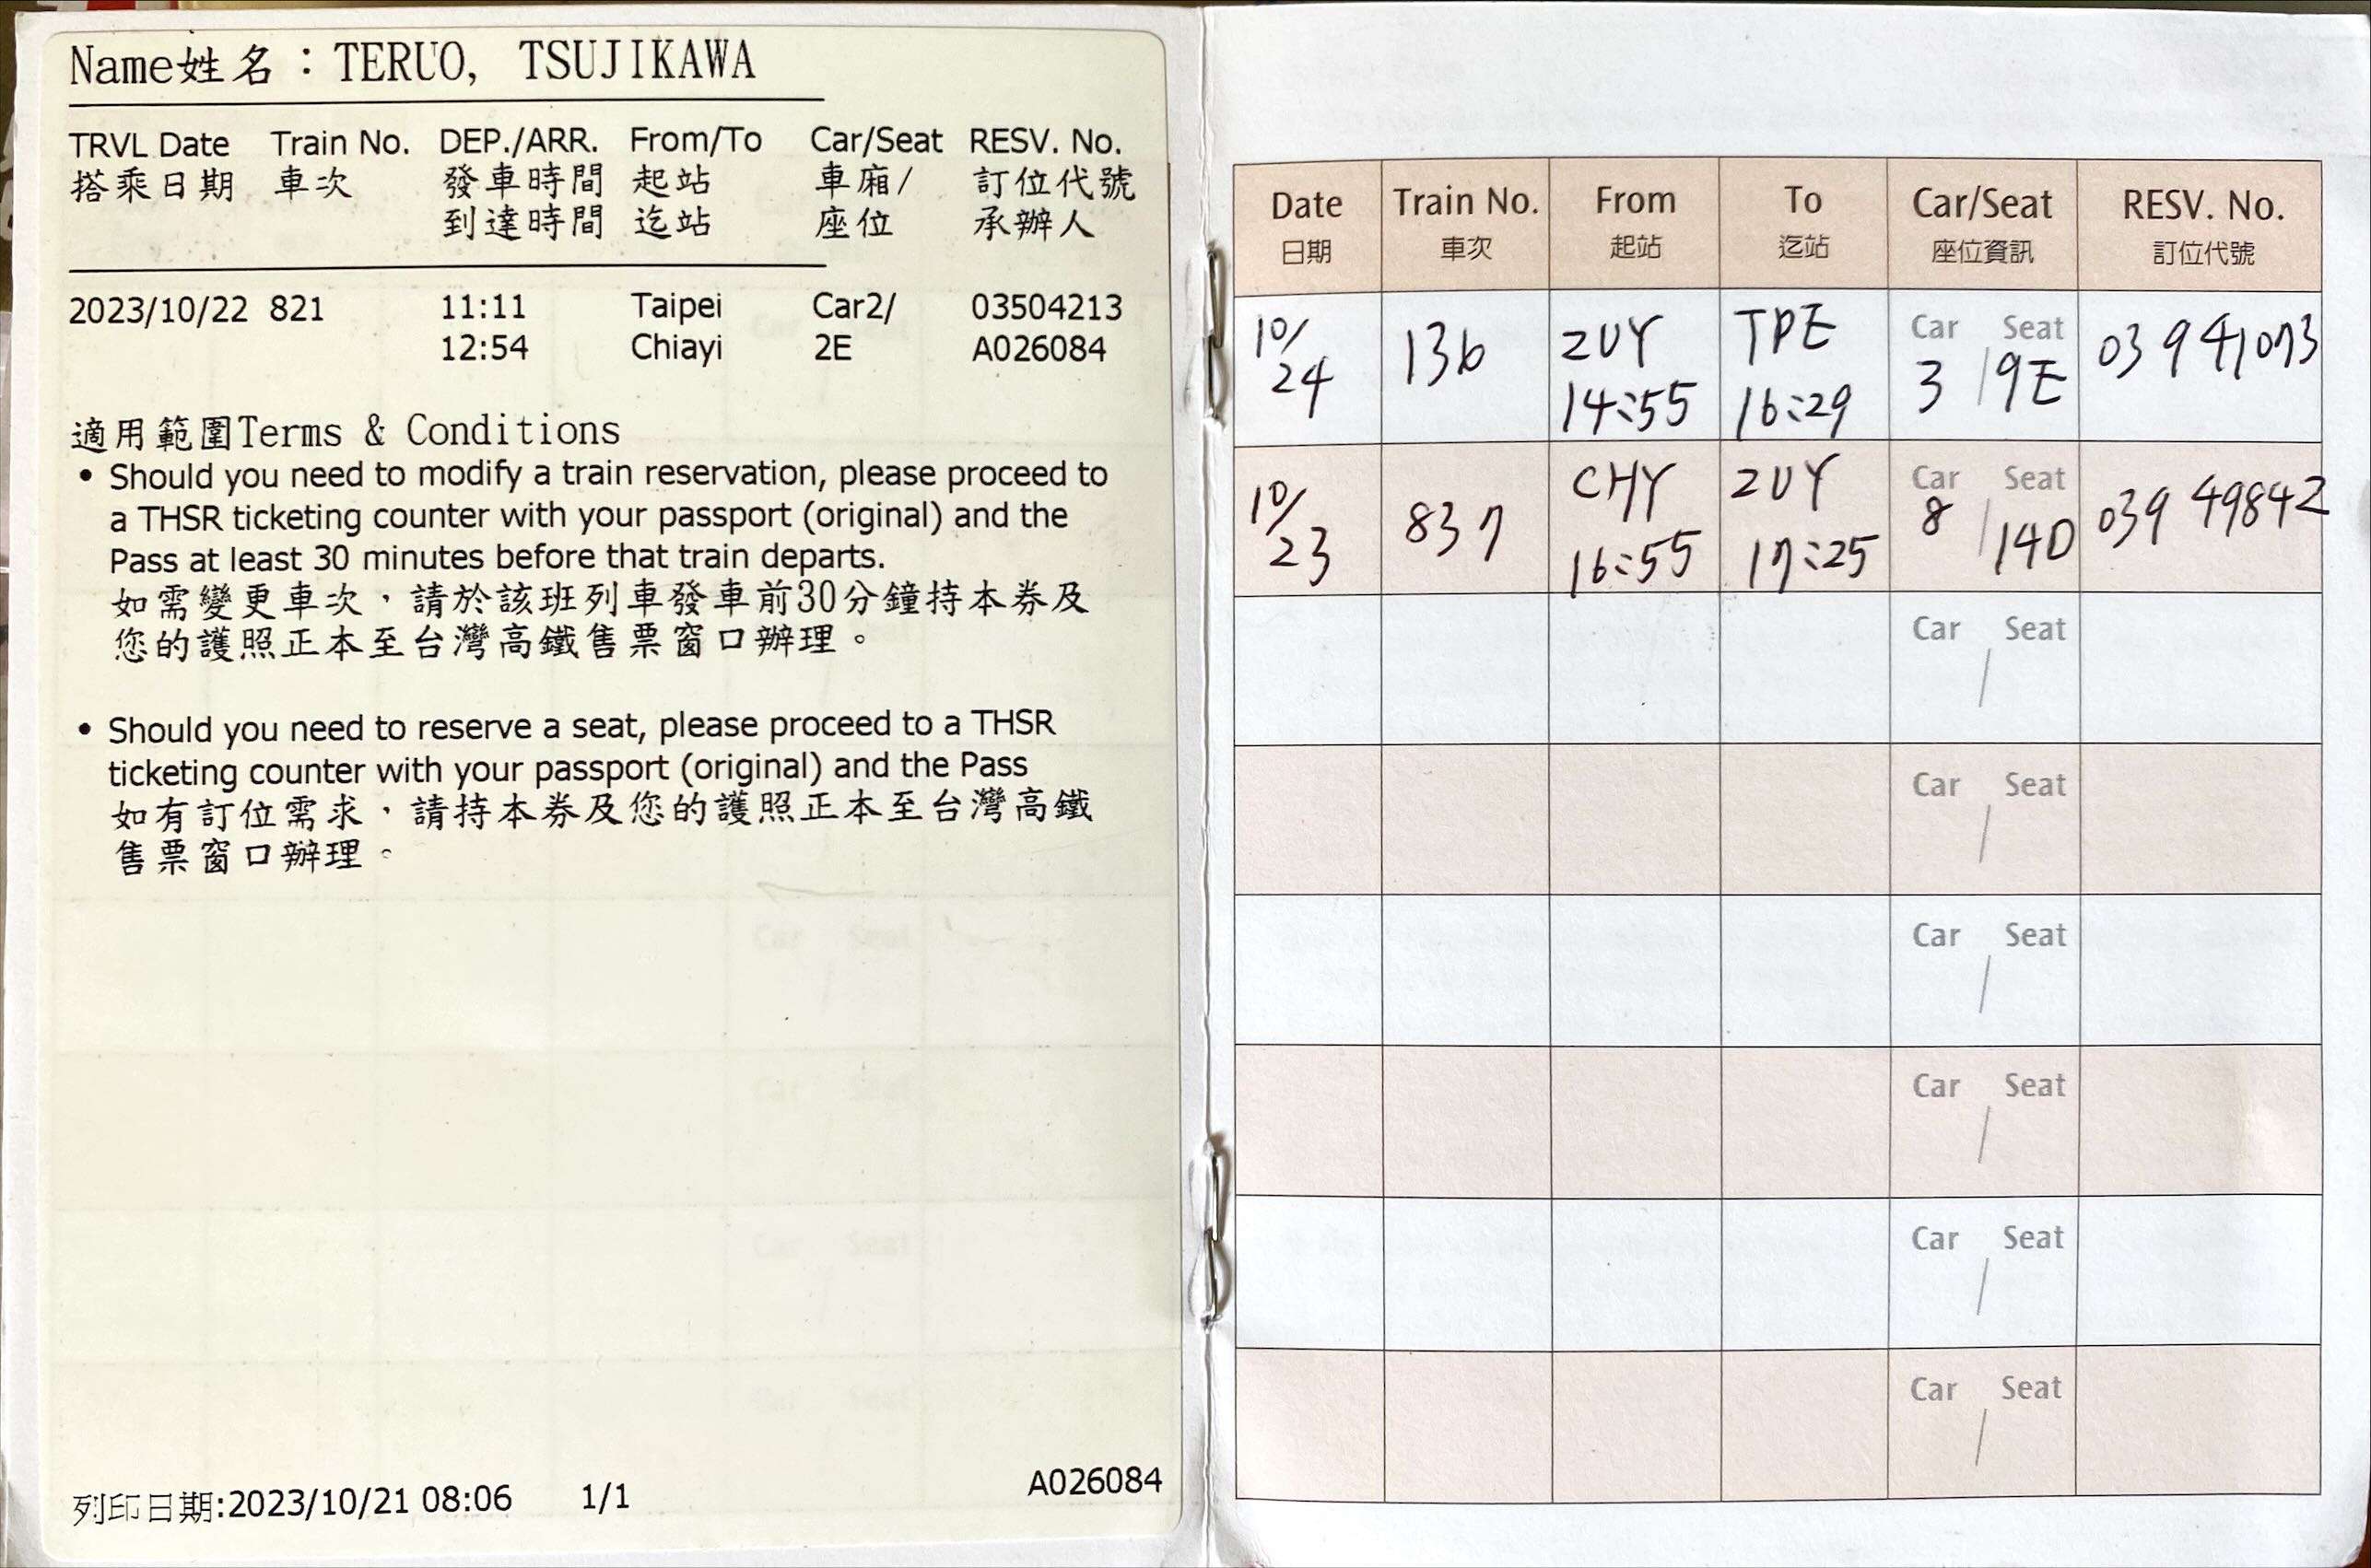 Name姓名：TERUO, TSUJIKAWA
TRVL Date Train No. DEP./ARR. From/To Car/Seat RESV. No.
搭乘日期 車次 發車時間 起站 車廂/ 訂位代號
到達時間 迄站 座位 承辦人
2023/10/22 821 11:11 Taipei Car2/ 03504213
12:54 Chiayi 2E A026084
適用範圍Terms & Conditions
• Should you need to modify a train reservation, please proceed to
a THSR ticketing counter with your passport (original) and the
Pass at least 30 minutes before that train departs.
如需變更車次，請於該班列車發車前30分鐘持本券及
您的護照正本至台灣高鐵售票窗口辦理。
• Should you need to reserve a seat, please proceed to a THSR
ticketing counter with your passport (original) and the Pass
如有訂位需求，請持本券及您的護照正本至台灣高鐵
售票窗口辦理。
列印日期:2023/10/21 08:06 1/1 A026084
Date Train No. From To Car/Seat RESV. No.
日期 車次 起站 迄站 座位資訊 訂位代號
Car Seat
10/24 136 ZUY TPE 3 / 9E 03941073
14:55 16:29
Car Seat
10/23 837 CHY ZUY 8 / 14D 03949842
16:55 17:25
Car Seat
/
Car Seat
/
Car Seat
/
Car Seat
/
Car Seat
/
Car Seat
/